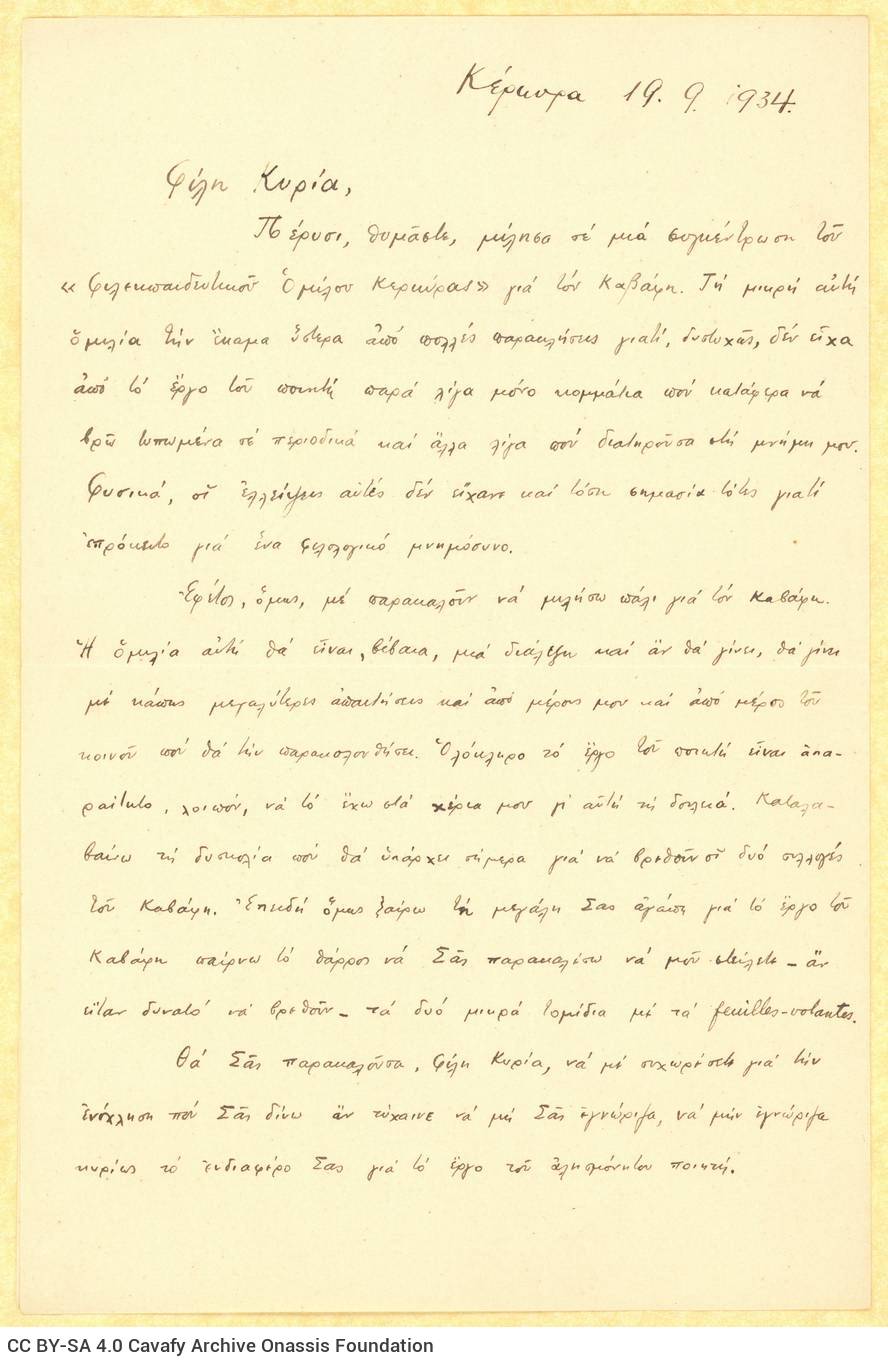 Κέρκυρα 19. 9. 1934.
Φίλη Κυρία,
Πέρυσι, θυμᾶστε, μίλησα σέ μιά συγκέντρωση τοῦ
« Φιλεκπαιδευτικοῦ Ὁμίλου Κερκύρας» γιά τόν Καβάφη. Τή μικρή αὐτή
ὁμιλία τήν ἔκαμα ὕστερα ἀπό πολλές παρακλήσεις γιατί, δυστυχῶς, δέν εἶχα
ἀπό τό ἔργο τοῦ ποιητῆ παρά λίγα μόνο κομμάτια πού κατάφερα νά
βρῶ τυπωμένα σέ περιοδικά καί ἄλλα λίγα πού διατηροῦσα στή μνήμη μου.
Φυσικά, οἱ ἐλλείψεις αὐτές δέν εἴχανε καί τόση σημασία τότες γιατί
ἐπρόκειτο γιά ἕνα φιλολογικό μνημόσυνο.
Ἐφέτος, ὅμως, μέ παρακαλοῦν νά μιλήσω πάλι γιά τόν Καβάφη.
Ἡ ὁμιλία αὐτή θά εἶναι, βέβαια, μιά διάλεξη καί ἄν θά γίνει, θά γίνει
μέ κάπως μεγαλύτερες ἀπαιτήσεις καί ἀπό μέρους μου καί ἀπό μέρος τοῦ
κοινοῦ πού θά τήν παρακολουθήσει. Ὁλόκληρο τό ἔργο τοῦ ποιητῆ εἶναι ἀπα-
ραίτητο, λοιπόν, νά τό ἔχω στά χέρια μου γι αὐτή τή δουλειά. Καταλα-
βαίνω τή δυσκολία πού θά ὑπάρχει σήμερα γιά νά βρεθοῦν οἱ δυό συλλογές
τοῦ Καβάφη. Ἐπειδή ὅμως ξαίρω τή μεγάλη Σας ἀγάπη γιά τό ἔργο τοῦ
Καβάφη παίρνω τό θάρρος νά Σᾶς παρακαλέσω νά μοῦ στείλετε – ἄν
εἴταν δυνατό νά βρεθοῦν – τά δυό μικρά τομίδια μέ τά feuilles-volantes.
Θά Σᾶς παρακαλοῦσα, φίλη Κυρία, νά μέ συχωρέσετε γιά τήν
ἐνόχληση πού Σᾶς δίνω ἄν τύχαινε νά μή Σᾶς ἐγνώριζα, νά μήν ἐγνώριζα
κυρίως τό ἐνδιαφέρο Σας γιά τό ἔργο τοῦ ἀλησμόνητου ποιητῆ.
CC BY-SA 4.0 Cavafy Archive Onassis Foundation